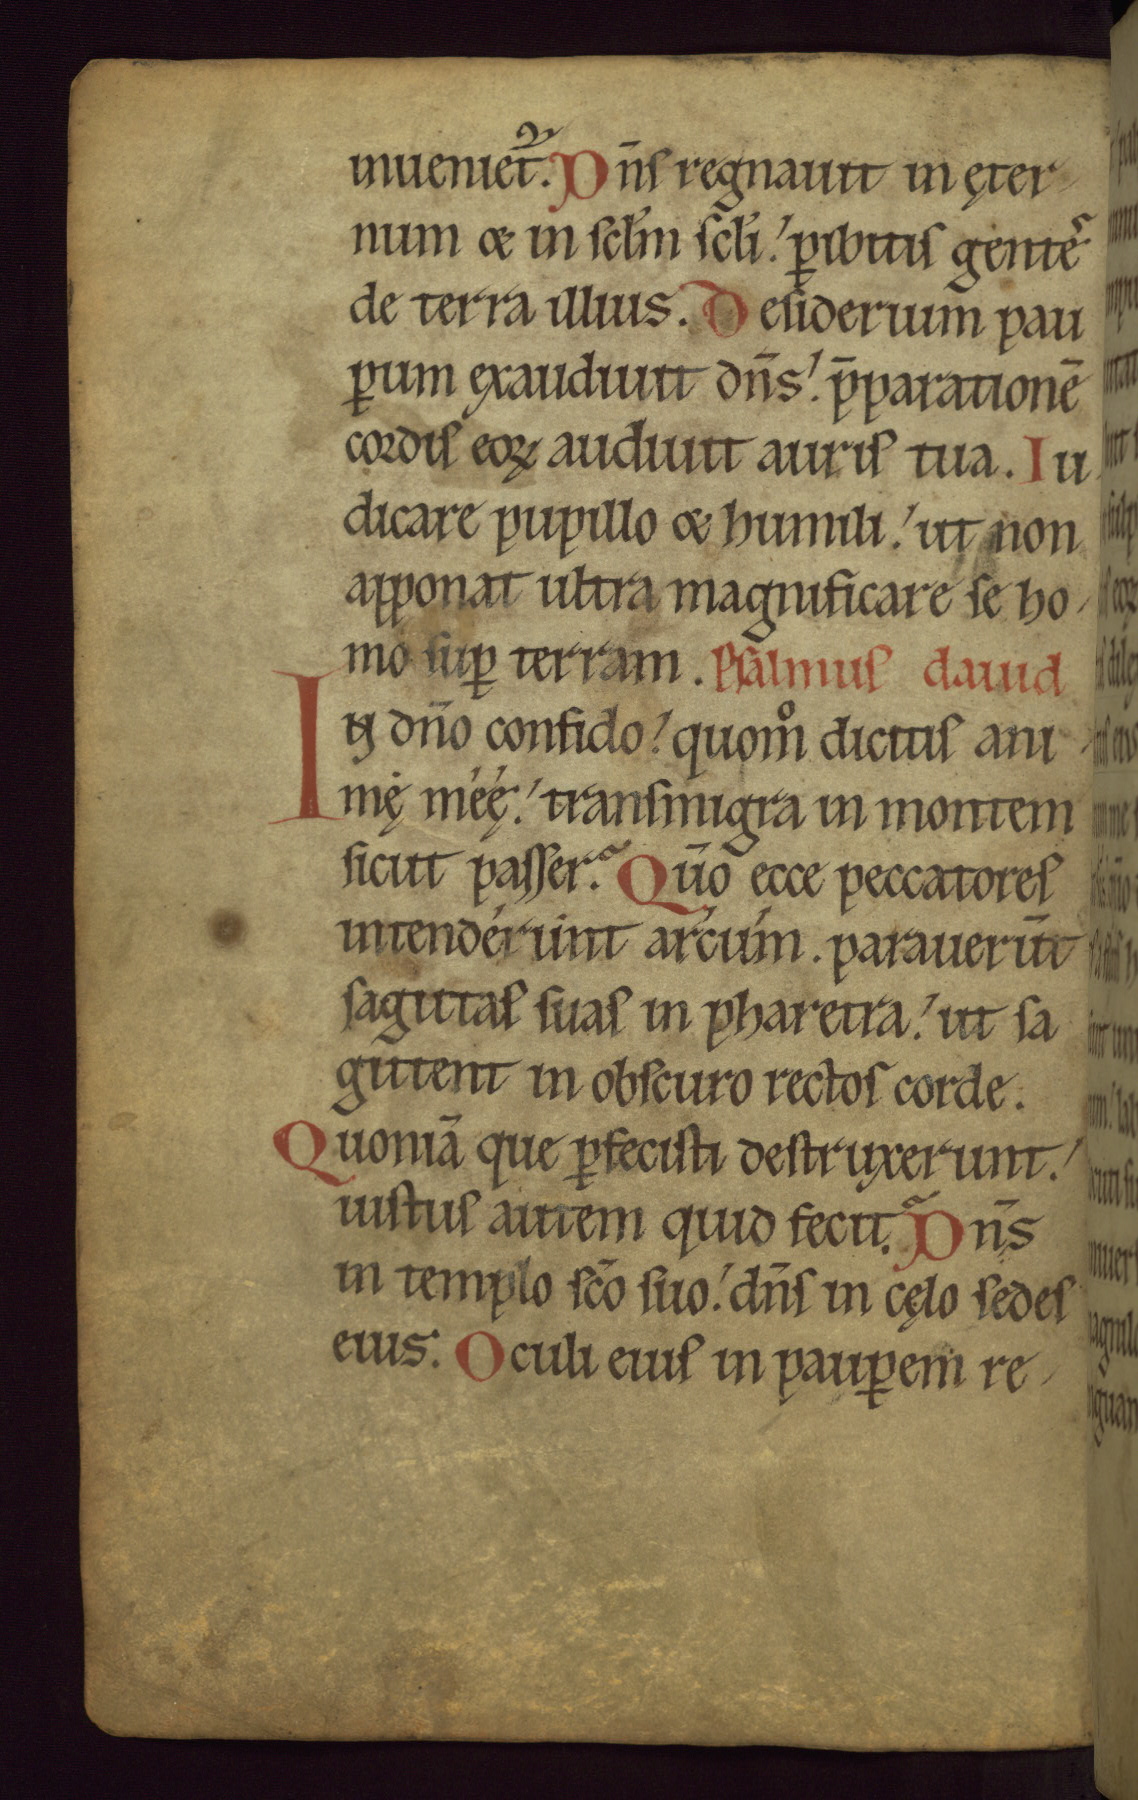 inueniet᷑. Dn̄s regnauit in ęter
num & in sclm̄ scl̄i! ꝑibitis gentes
de terra illius. Desiderium pau
ꝑum exaudiuit dn̄s! p̄parationē
cordis eoꝝ audiuit auris tua. Iu
dicare pupillo & humili! ut non
apponat ultra magnificare se ho
mo suꝑ terram. Psalmus dauid
IN dn̄o confido! quom̊ dicitis ani
mę méę! transmigra in montem
sicut passer. Qūo ecce peccatores
intendérunt árcúm. parauerūt
sagittas suas in pharetra! ut sa
gittent in obscuro rectos corde.
Quoniā que ꝑfecisti destruxerunt!
iustus autem quid fecit. Dn̄s
in templo sc̄o suo! dn̄s in cęlo sedes
eius. Oculi eius in pauꝑem re